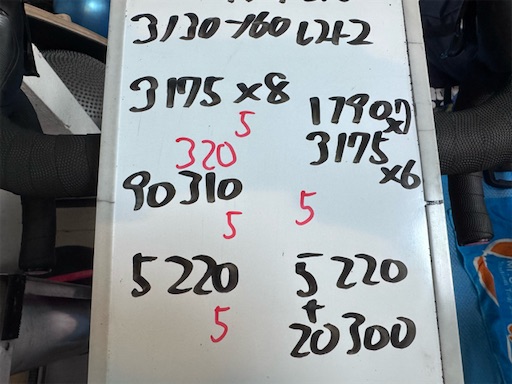 3130-160 L2+2
3175 x8
5
320
90310
5
5220
5
1790
3175
x6
5
5220
+
20300